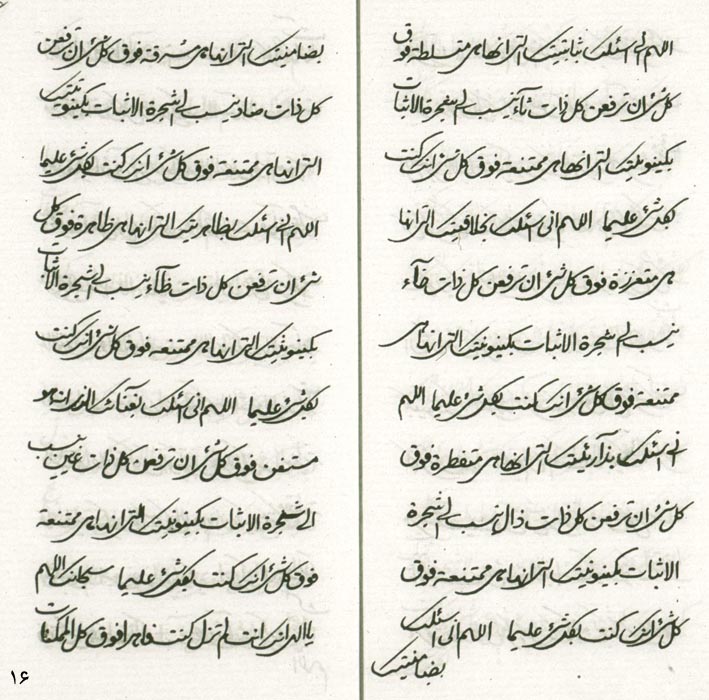 اللهم انی اسئلک بثابتیتک التی انها هی متسلطة فوق
کل شیء ان ترفعن کل ذات ثاء ینسب الی شجرة الاثبات
بکینونیتک التی انها هی ممتنعة فوق کل شیء انک کنت
بکل شیء علیما اللهم انی اسئلک بخلاقیتک التی انها
هی متعززة فوق کل شیء ان ترفعن کل ذات خاء
ینسب الی شجرة الاثبات بکینونیتک التی انها هی
ممتنعة فوق کل شیء انک کنت بکل شیء علیما اللهم
انی اسئلک بذارئیتک التی انها هی متفطرة فوق
کل شیء ان ترفعن کل ذات ذال ینسب الی شجرة
الاثبات بکینونیتک التی انها هی ممتنعة فوق
کل شیء انک کنت بکل شیء علیما اللهم انی اسئلک
بضامنیتک
بضامنیتک التی انها هی مشرقة فوق کل شیء ان ترفعن
کل ذات ضاد ینسب الی شجرة الاثبات بکینونیتک
التی انها هی ممتنعة فوق کل شیء انک کنت بکل شیء علیما
اللهم انی اسئلک بظاهریتک التی انها هی ظاهرة فوق کل
شیء ان ترفعن کل ذات ظاء ینسب الی شجرة الاثبات
بکینونیتک التی انها هی ممتنعة فوق کل شیء انک کنت
بکل شیء علیما اللهم انی اسئلک الذی انه هو
فوق کل شیء ان ترفعن کل ذات غین ینسب
الی شجرة الاثبات بکینونیتک التی انها هی ممتنعة
فوق کل شیء انک کنت بکل شیء علیما سبحانک اللهم
یا الهی انک انت لم تزل کنت قاهرا فوق کل الممکنات
۱۶